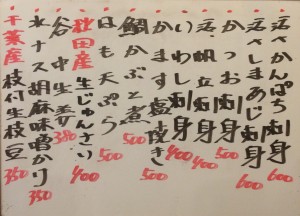 活さしかんぱち刺身 600
活さしまあじ刺身 600
かつお刺身 500
活帆立刺身 400
いわし刺身 400
かます塩焼き 500
鯛かぶと煮 500
はも天ぷら 500
秋田産 生じゅんさい 400
谷中生姜 380
水ナス胡麻味噌かけ 350
千葉産 枝付生枝豆 350